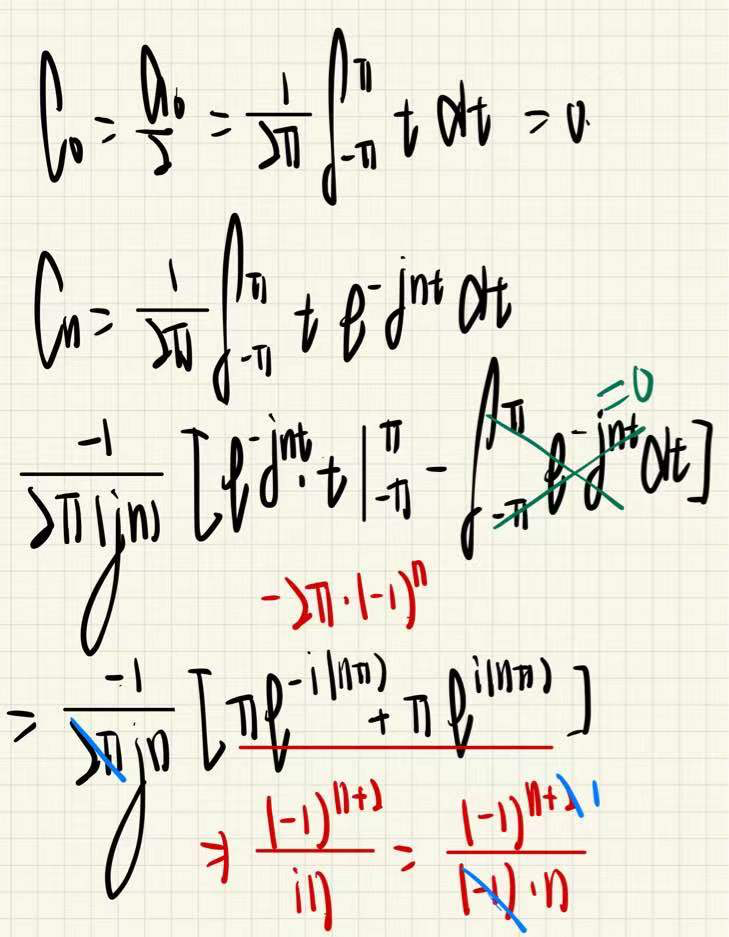 C₀ = a₀/2 = 1/2π ∫_{-π}^{π} t dt = 0.
Cₙ = 1/2π ∫_{-π}^{π} t e^{-jnt} dt
-1/2π(jn) [e^{-jnt} · t |_{-π}^{π} - ∫_{-π}^{π} e^{-jnt} dt] = 0
-2π·(-1)^n
= -1/2πjn [π e^{-i(nπ)} + π e^{i(nπ)}]
⇒ (-1)^{n+1}/in = (-1)^{n+1}/(-1)·n